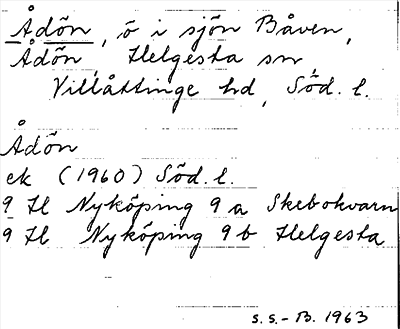 Ådön, ö i sjön Båven,
Ådön, Helgesta sn,
Villåttinge hd, Söd. l.
Ådön
ek (1960) Söd. l.
9 H Nyköping 9 a Skebokvarn
9 H Nyköping 9 b Helgesta
S.S.-B. 1963